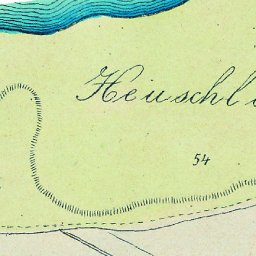 Heuschl
54